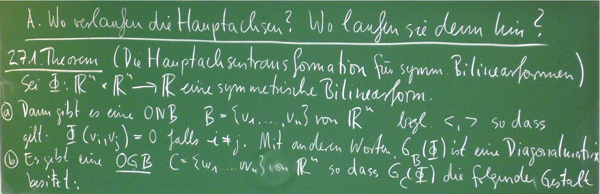 A. Wo verlaufen die Hauptachsen? Wo laufen sie denn hin?
27.1. Theorem (Die Hauptachsentransformation für symm. Bilinearformen)
Sei Φ: ℝⁿ × ℝⁿ → ℝ eine symmetrische Bilinearform.
(a) Dann gibt es eine ONB B = {v₁, ..., vₙ} von ℝⁿ bzgl. <,> so dass
gilt. Φ(vᵢ, vⱼ) = 0 falls i ≠ j. Mit anderen Worten. G_B(Φ) ist eine Diagonalmatrix
(b) Es gibt eine OGB C = {w₁ ... wₙ} von ℝⁿ so dass G_C(Φ) die folgende Gestalt
besitzt: